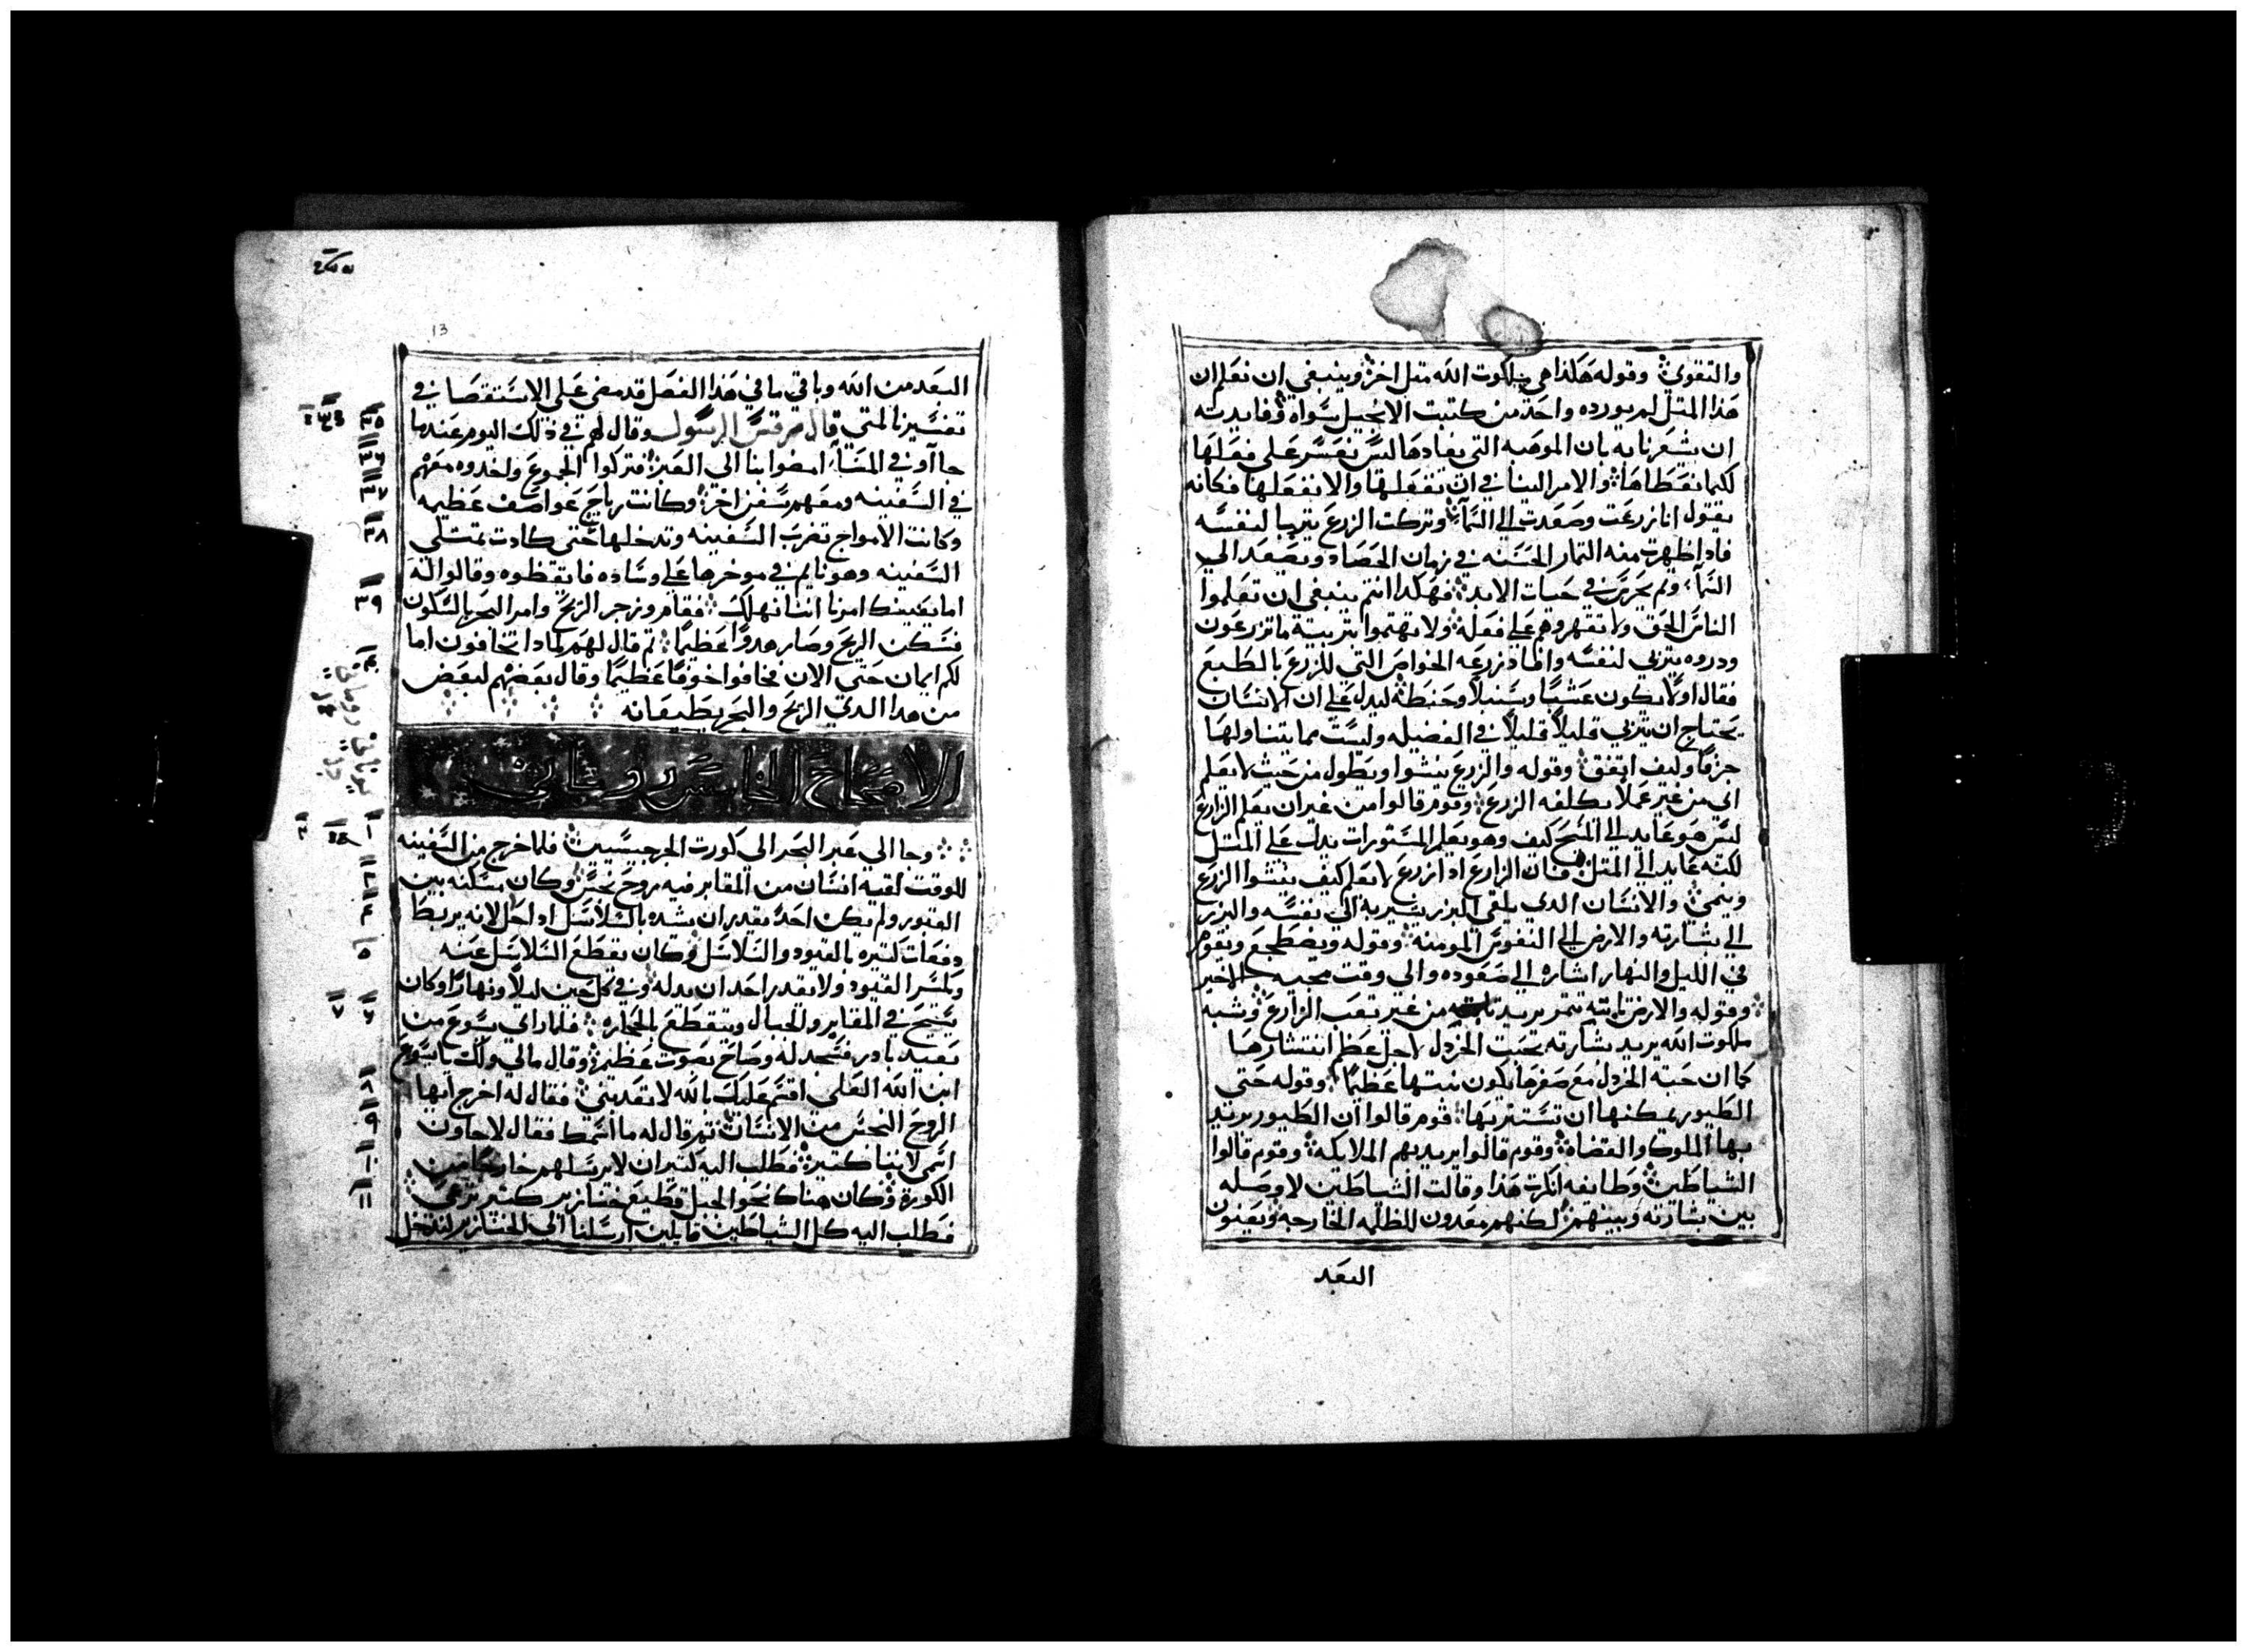 والتقوي وقوله هكذا هي ملكوت الله متل اخر وينبغي ان نعلم ان
هذا المتل لم يورده واحد من كتبت الانجيل سواه وفايدته
ان يشعرنا به بان الموهبه التي يفادها ليس نفسر علي فعلها
لكيما نعطاها والامر الينا في ان نفعلها والا نفعلها فكانه
يقول انا زرعت وصعدت الي السمآء وتركت الزرع يتربا لنفسه
فادا ظهرت منه التمار الحسنه في زمان الحصاد ويصعد الي
السمآء ولم يحزن في حيات الابد فهكدا انتم ينبغي ان تعلموا
الناس الحق ولا تقهروهم علي فعله ولا تهتموا بتربية ما تزرعون
ودروه يتربي لنفسه واظهاد زرعه الخواص التي للزرع بالطبع
فقال اولا يكون عشبا وسنبلا وحنطه ليدل علي ان الانسان
يحتاج ان يتربي قليلا قليلا في الفضيله وليست مما يتناولها
جزفا وليف اتفق وقوله والزرع ينشوا ويطول من حيث لا يعلم
اي من غير عملا يكلفه الزرع وقوم قالوا من غير ان يعلم الزارع
ليس هو عايد الي المسيح كيف وهو يعلم المستورات بدل علي المتل
لكنه عايد الي المتل فان الزارع ادا زرع لا يعلم كيف ينشوا الزرع
وينمي والانسان الدي يلقي البزر يشير به الي نفسه والبزر
الي بشارته والارض الي النفوس المومنه وقوله ويضطجع ويقوم
في الليل والنهار اشاره الي صعوده والي وقت مجيه الاخير
وقوله والارض تاتيه بتمر يريد من غير تعب الزارع وشبه
ملكوت الله يريد بشارته بحبت الخردل لاجل عظم انتشارها
كما ان حبة الخردل مع صغرها يكون نبتها عظيما وقوله حتي
الطيور يمكنها ان تستتر بها قوم قالوا ان الطيور يريد
بها الملوك والقضاه وقوم قالوا يريد بهم الملايكه وقوم قالوا
الشياطين وطايفه انكرت هذا وقالت الشياطين لا وصله
بين بشارته وبينهم لكنهم معدون للظلمه الخارجه ويعنون
البعد
13
البعد من الله وباقي ما في هذا الفصل قد مضي علي الاستقصا في
تفسيرنا لمتي قال مرقس الرسول وقال لهم في ذلك اليوم عندما
جا آوني المسآء امضوا بنا الي العبر فتركوا الجموع واخدوه معهم
في السفينه ومعهم سفن اخر وكانت رياح عواصف عظيمه
وكانت الامواج تضرب السفينه وتدخلها حتي كادت تمتلي
السفينه وهو نايم في موخرها علي وساده فايقظوه وقالوا له
اما يعنيك امرنا اننا نهلك فقام وزجر الريح وامر البحر بالسكون
فسكن الريح وصار هدوا عظيما تم قال لهم لمادا تخافون اما
لكم ايمان حتي الان فخافوا خوفا عظيما وقال بعضهم لبعض
من هدا الدي الريح والبحر يطيعانه
الاصحاح الخامس
وجا الي عبر البحر الي كورت الجرجيسيين فلما خرج من السفينه
للوقت لقيه انسان من المقابر فيه روح نجس وكان مسكنه بين
القبور ولم يكن احد يقدر ان يشده بالسلاسل اد اجل لانه يربط
دفعات كتيره بالقيود والسلاسل وكان يقطع السلاسل عنه
ويكسر القيود ولا يقدر احد ان يدله وفي كل حين ليلا ونهارا وكان
يصيح في المقابر والجبال ويتقطع بالحجاره فلما راي يسوع من
بعيد بادر فسجد له وصاح بصوت عظيم وقال مالي ولك يا يسوع
ابن الله العلي اقسم عليك بالله لا تعدبني فقال له اخرج ايها
الروح النجس من الانسان تم قال له ما اسمك فقال لاجاون
اسمي لاننا كتير فطلب اليه كتير ان لا يرسلهم خارجا من
الكورة وكان هناك نحو الجبل قطيع خنازير كتير ترعي
فطلب اليه كل الشياطين قايلين ارسلنا الي الخنازير لندخل